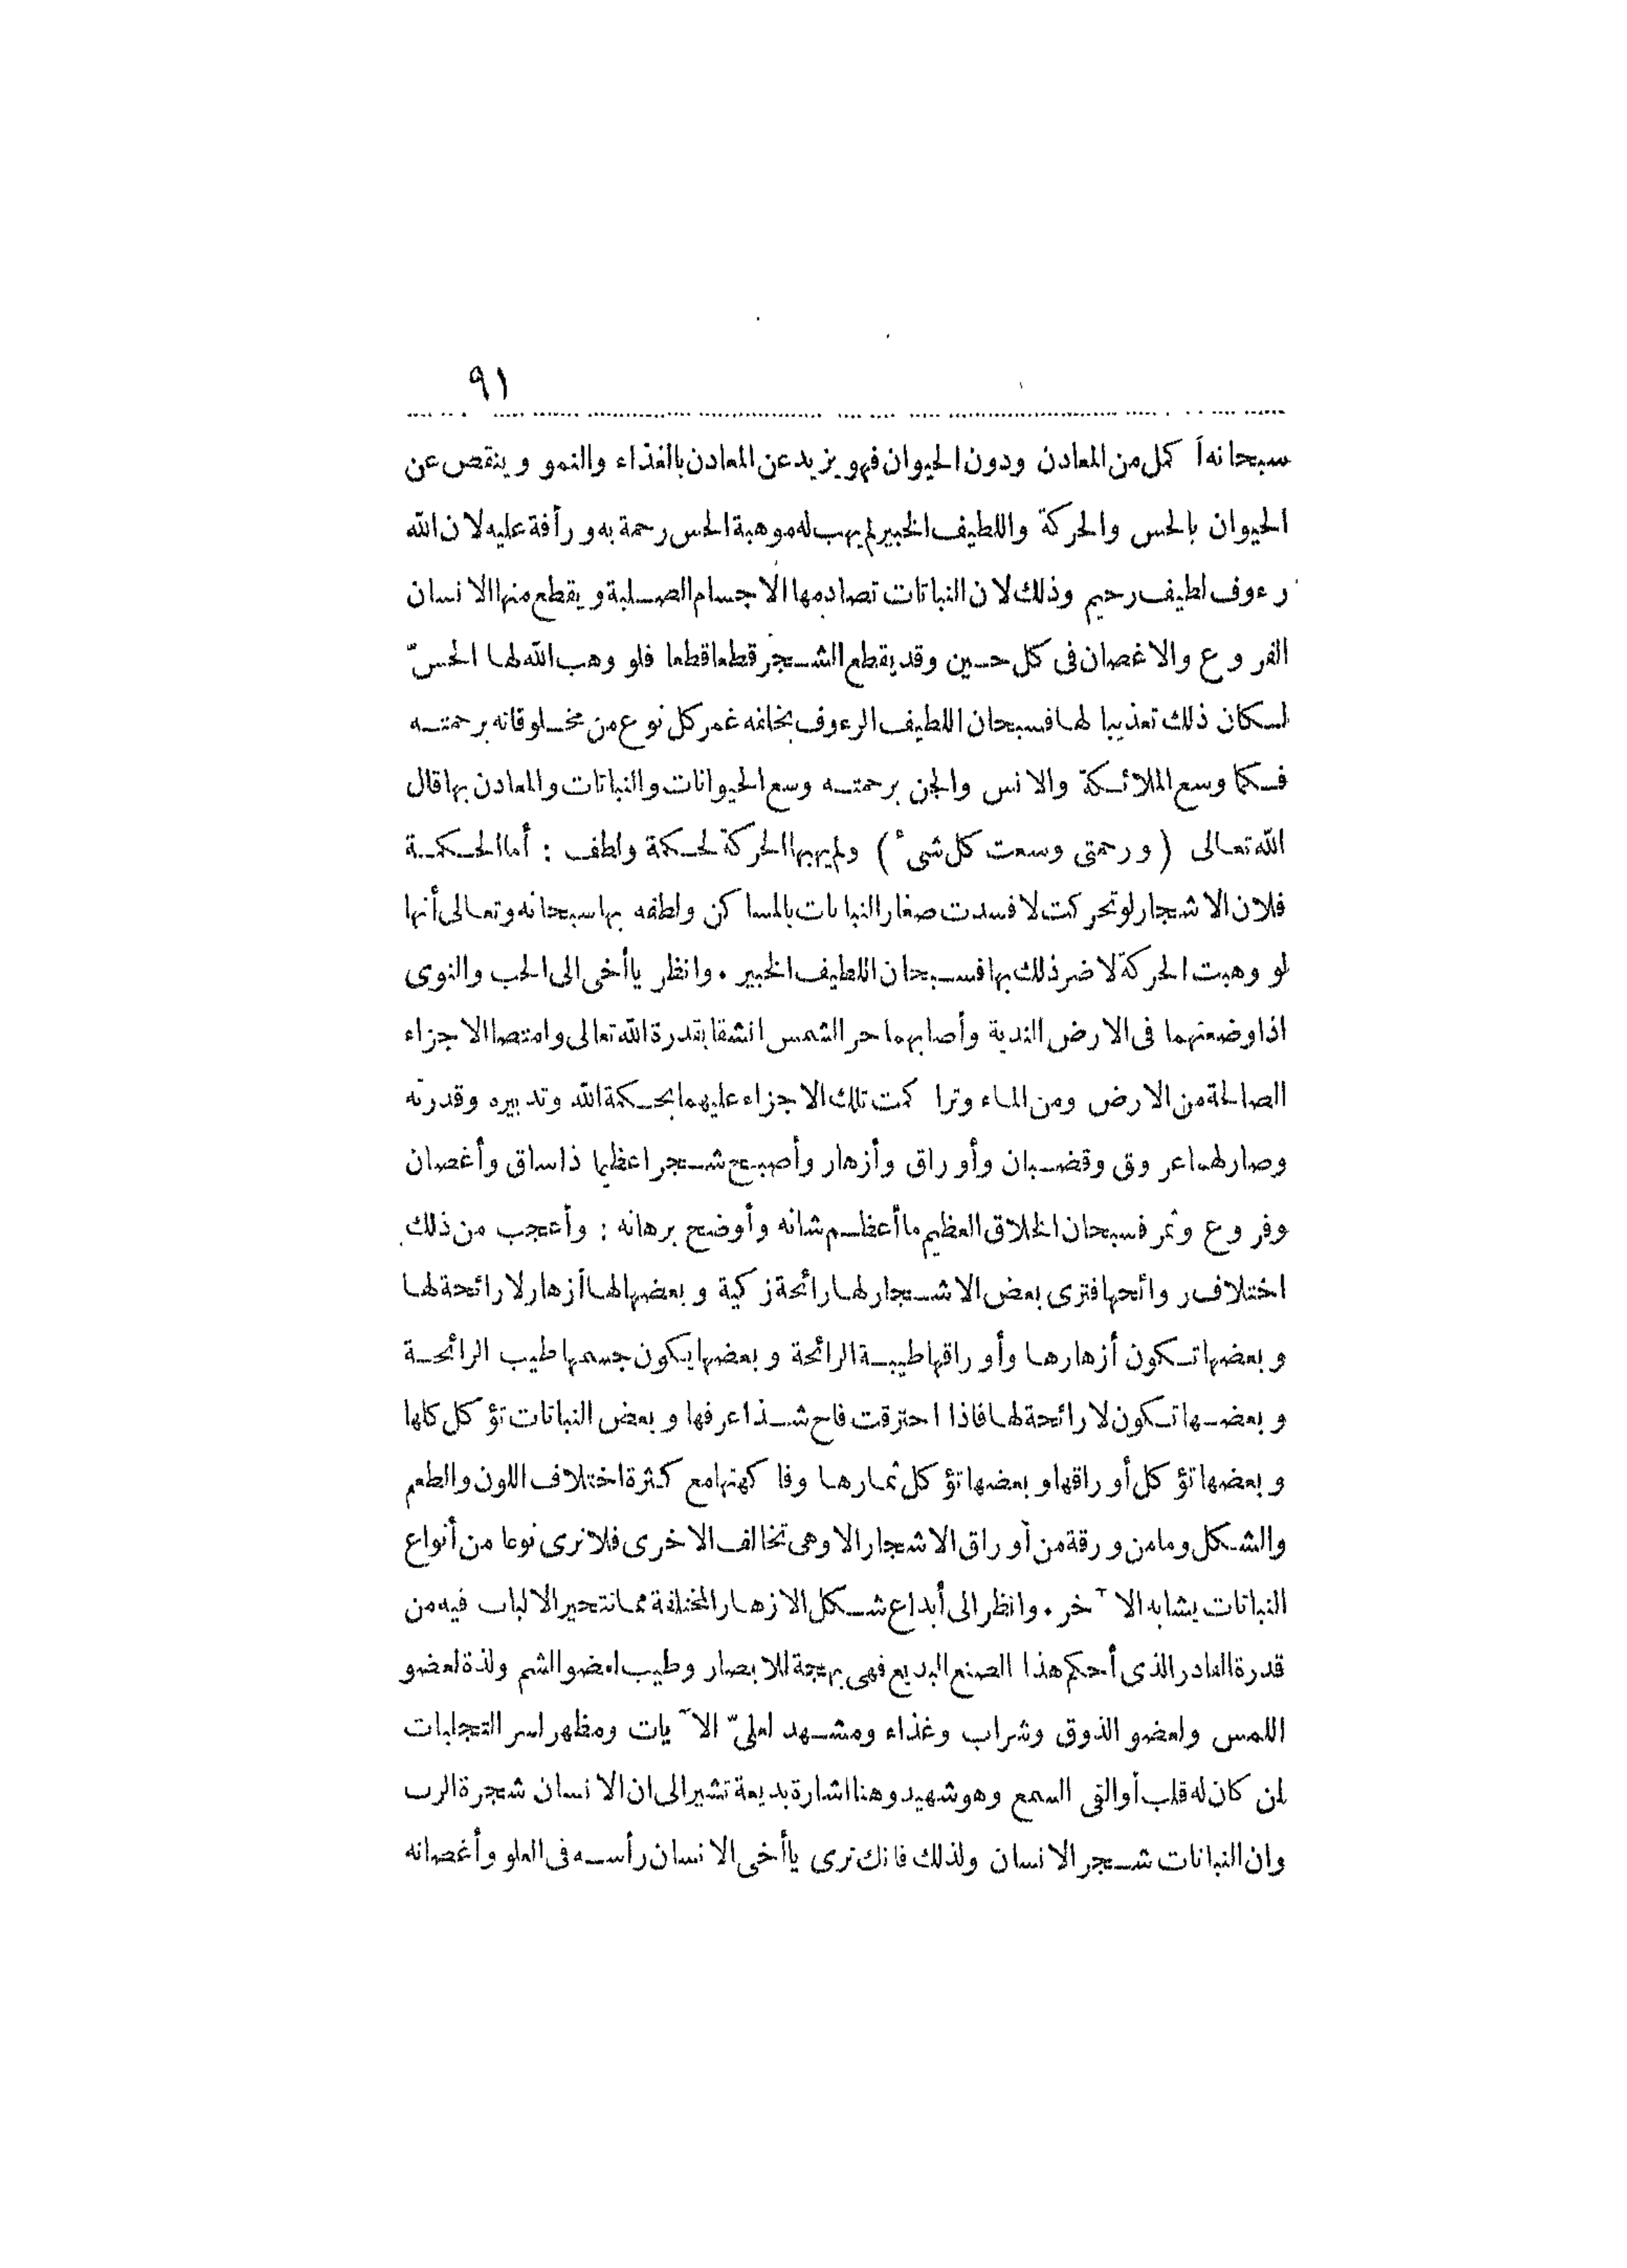 ٩١
سبحانه أكمل من المعادن ودون الحيوان فهو يزيد عن المعادن بالغذاء والنمو وينقص عن
الحيوان بالحس والحركة واللطيف الخبير لم يهب له موهبة الحس رحمة به ورأفة عليه لان الله
رءوف لطيف رحيم وذلك لان النباتات تصادمها الاجسام الصلبة ويقطع منها الانسان
الفروع والاغصان فى كل حين وقد يقطع الشجر قطعا قطعا فلو وهب الله لها الحسّ
لكان ذلك تعذيبا لها فسبحان اللطيف الرءوف بخلقه غمر كل نوع من مخلوقاته برحمته
فكما وسع الملائكة والانس والجن برحمته وسع الحيوانات والنباتات والمعادن بها قال
الله تعالى (ورحمتى وسعت كل شىء) ولم يهبها الحركة لحكمة ولطف : أما الحكمة
فلان الاشجار لو تحركت لافسدت صغار النباتات بالمساكن ولطفه بها سبحانه وتعالى أنها
لو وهبت الحركة لاضر ذلك بها فسبحان اللطيف الخبير . وانظر ياأخى الى الحب والنوى
اذا وضعتهما فى الارض الندية وأصابهما حر الشمس انشقا بقدرة الله تعالى وامتصا الاجزاء
الصالحة من الارض ومن الماء وتراكمت تلك الاجزاء عليهما بحكمة الله وتدبيره وقدرته
وصار لهما عروق وقضبان وأوراق وأزهار وأصبح شجرا عظيما ذا ساق وأغصان
وفروع وثمر فسبحان الخلاق العظيم ما أعظم شانه وأوضح برهانه : وأعجب من ذلك
اختلاف روائحها فترى بعض الاشجار لها رائحة زكية وبعضها لها أزهار لا رائحة لها
وبعضها تكون أزهارها وأوراقها طيبة الرائحة وبعضها يكون جسمها طيب الرائحة
وبعضها تكون لا رائحة لها فاذا احترقت فاح شذا عرفها وبعض النباتات تؤكل كلها
وبعضها تؤكل أوراقها وبعضها تؤكل ثمارها وفاكهتها مع كثرة اختلاف اللون والطعم
والشكل وما من ورقة من أوراق الاشجار الا وهى تخالف الاخرى فلا نرى نوعا من أنواع
النباتات يشابه الآخر . وانظر الى أبداع شكل الازهار المختلفة مما تتحير الالباب فيه من
قدرة القادر الذى أحكم هذا الصنع البديع فهى بهجة للابصار وطيب لعضو الشم ولذة لعضو
اللمس ولعضو الذوق وشراب وغذاء ومشهد لعلىّ الآيات ومظهر لسر التجليات
لمن كان له قلب أو القى السمع وهو شهيد وهنا اشارة بديعة تشير الى ان الانسان شجرة الرب
وان النباتات شجر الانسان ولذلك فانك ترى ياأخى الانسان رأسه فى العلو وأغصانه